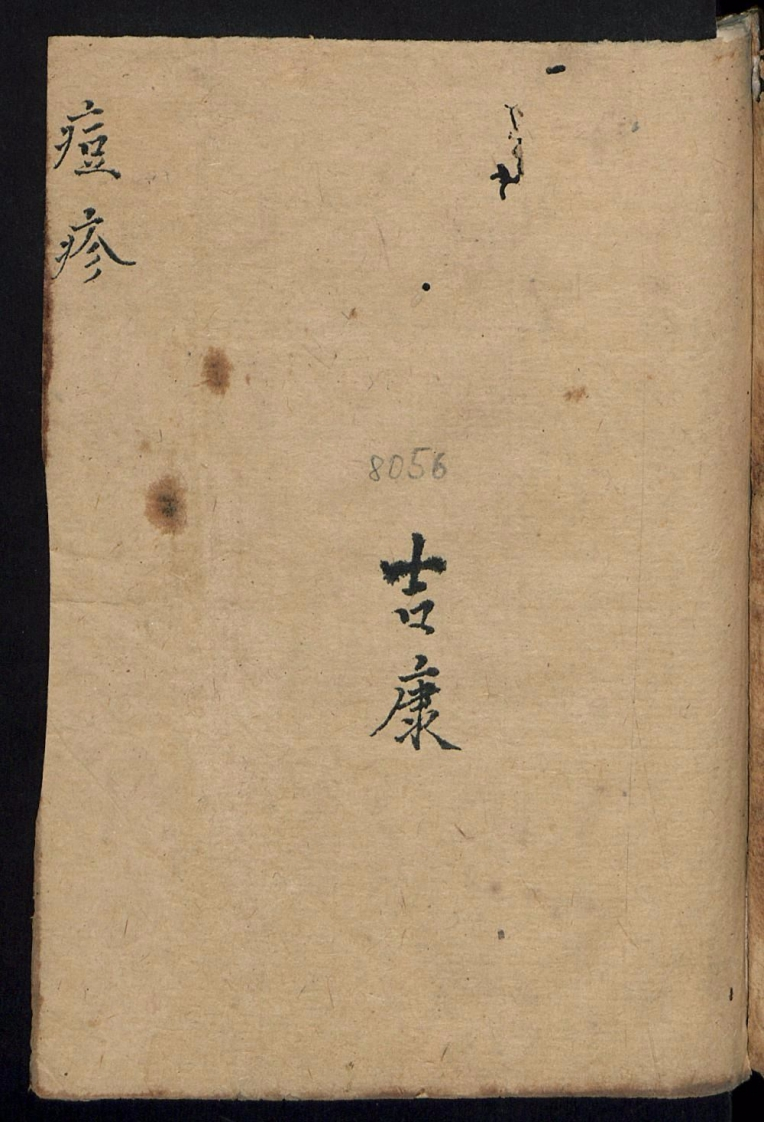 痘疹
8056
吉康